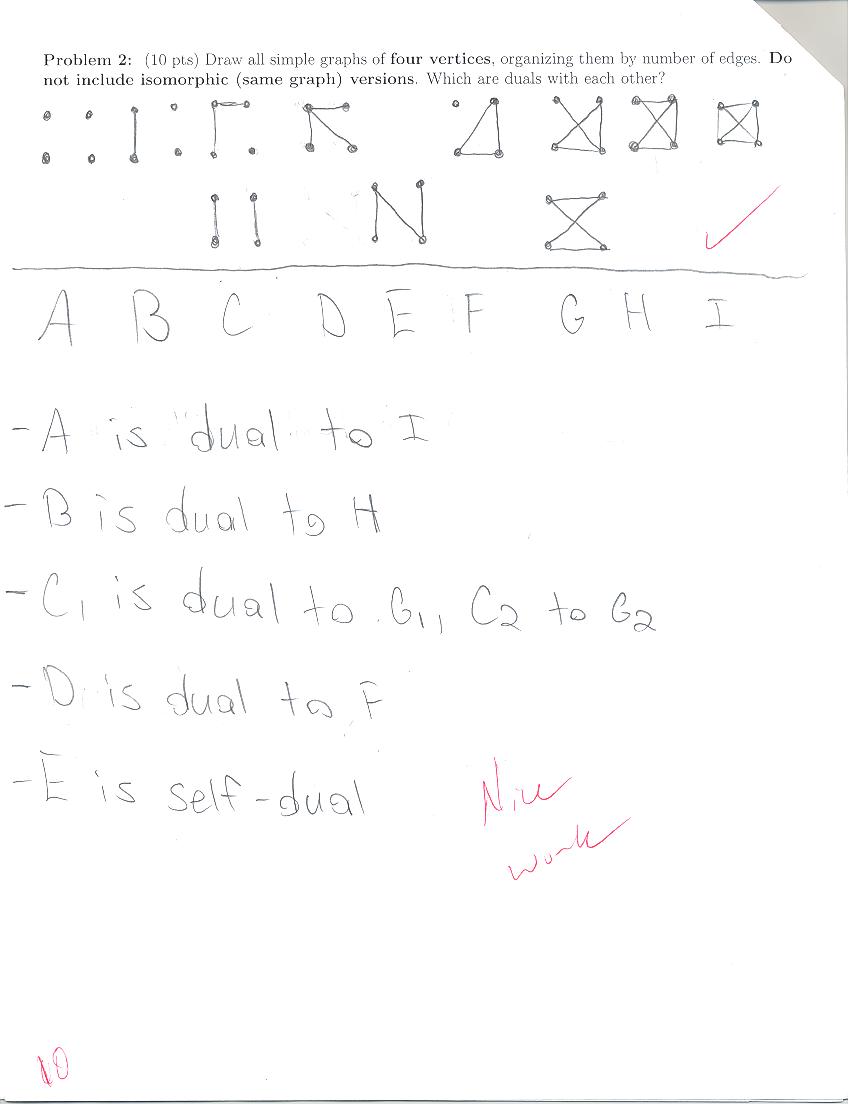 Problem 2: (10 pts) Draw all simple graphs of four vertices, organizing them by number of edges. Do
not include isomorphic (same graph) versions. Which are duals with each other?
A B C D E F G H I
- A is dual to I
- B is dual to H
- C1 is dual to G1, C2 to G2
- D is dual to F
- E is self-dual
Nice
work
10